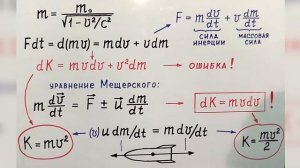 m = m₀ / √(1 - v²/c²)
F = m dv/dt + v dm/dt
сила инерции массовая сила
Fdt = d(mv) = mdv + vdm
dK = mvdv + v²dm → ошибка!
уравнение Мещерского:
m dv⃗/dt = F⃗ ± u⃗ dm/dt → dK = mvdv !
K = mv² (v) u dm/dt = m dv/dt K = mv²/2